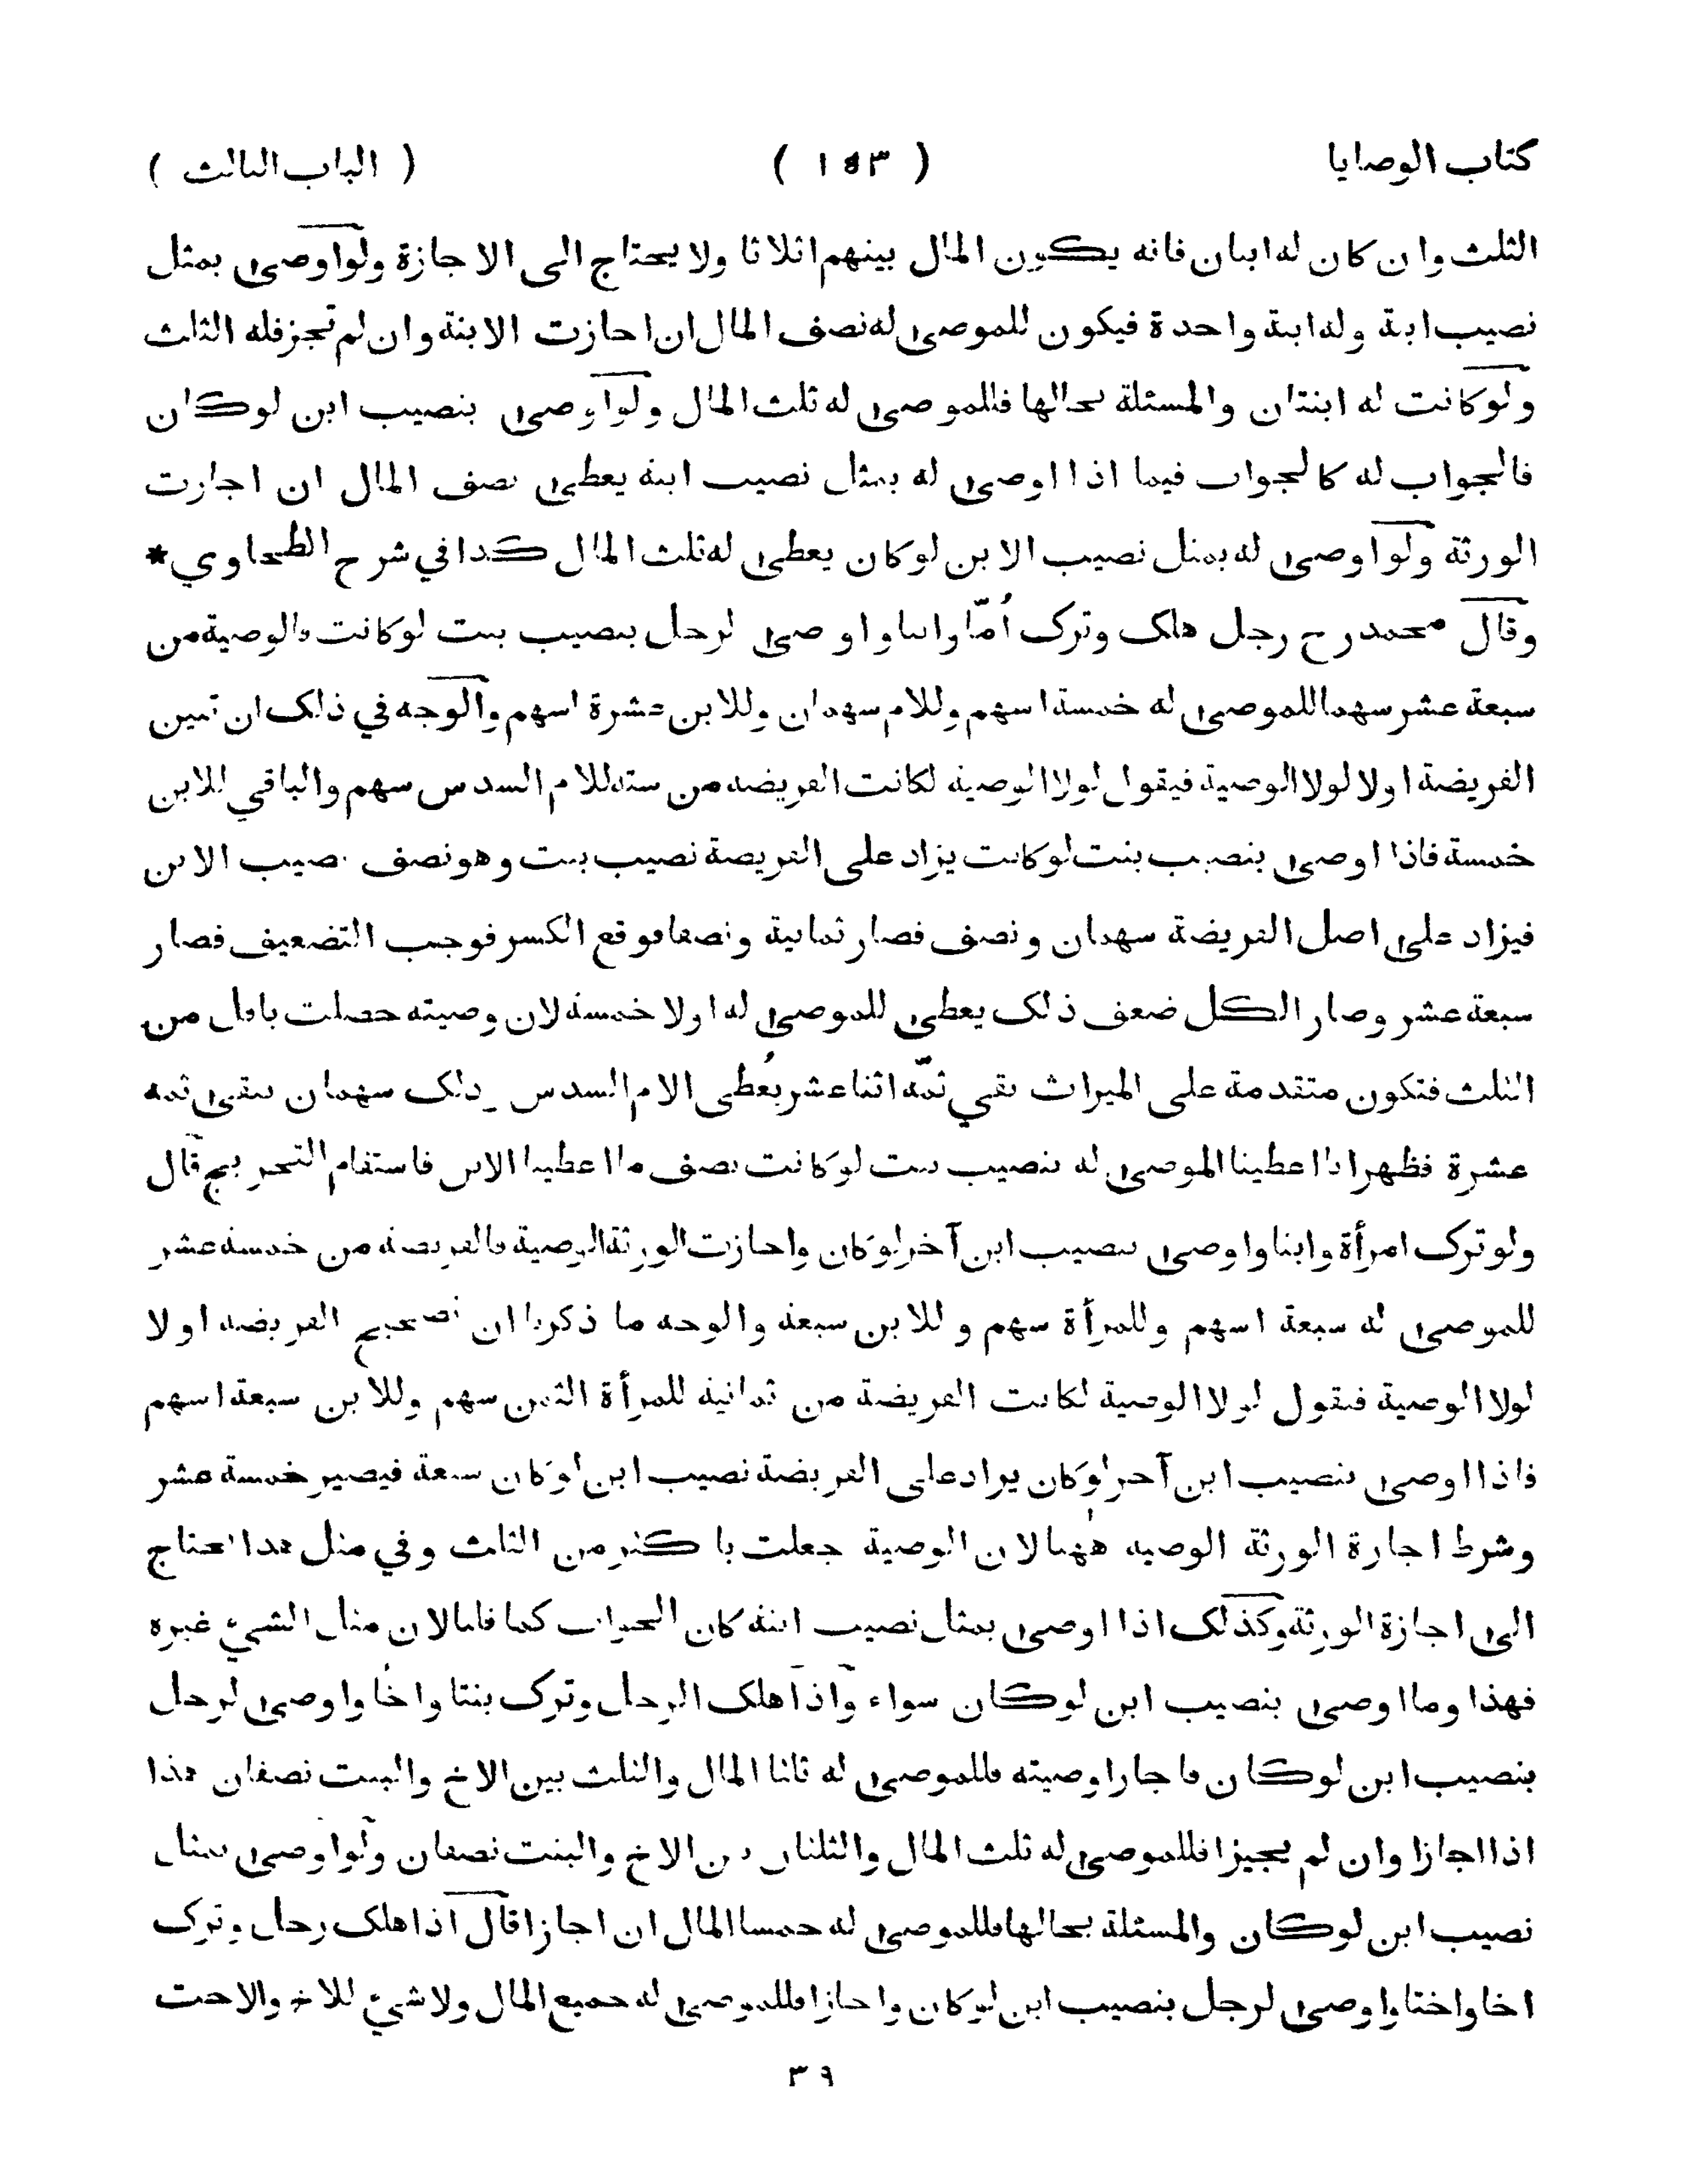 كتاب الوصايا ( ١٥٣ ) ( الباب الثالث )
الثلث وان كان له ابنان فانه يكون المال بينهم اثلاثا ولا يحتاج الى الاجازة ولو اوصى بمثل
نصيب ابنة وله ابنة واحدة فيكون للموصى له نصف المال ان اجازت الابنة وان لم تجز فله الثلث
ولو كانت له ابنتان والمسئلة بحالها فللموصى له ثلث المال ولو اوصى بنصيب ابن لو كان
فالجواب له كالجواب فيما اذا اوصى له بمثل نصيب ابنه يعطى نصف المال ان اجازت
الورثة ولو اوصى له بمثل نصيب الابن لو كان يعطى له ثلث المال كذا في شرح الطحاوي *
وقال محمد رح رجل هلك وترك أمّا وابنا واوصى لرجل بنصيب بنت لو كانت فالوصية من
سبعة عشر سهما للموصى له خمسة اسهم وللام سهمان وللابن عشرة اسهم والوجه في ذلك ان تبين
الفريضة اولا لولا الوصية فيقول لولا الوصية لكانت الفريضة من ستة للام السدس سهم والباقي للابن
خمسة فاذا اوصى بنصيب بنت لو كانت يزاد على الفريضة نصيب بنت وهو نصف نصيب الابن
فيزاد على اصل الفريضة سهمان ونصف فصار ثمانية ونصفا فوقع الكسر فوجب التضعيف فصار
سبعة عشر وصار الكل ضعف ذلك يعطى للموصى له اولا خمسة لان وصيته حصلت باقل من
الثلث فتكون متقدمة على الميراث بقي ثمّه اثنا عشر يُعطى الام السدس ذلك سهمان يبقى ثمه
عشرة فظهر انا اعطينا الموصى له بنصيب بنت لو كانت نصف ما اعطينا الابن فاستقام التخريج قال
ولو ترك امرأة وابنا واوصى بنصيب ابن آخر لو كان واجازت الورثة الوصية فالفريضة من خمسة عشر
للموصى له سبعة اسهم وللمرأة سهم وللابن سبعة والوجه ما ذكرنا ان تصحيح الفريضة اولا
لولا الوصية فنقول لولا الوصية لكانت الفريضة من ثمانية للمرأة الثمن سهم وللابن سبعة اسهم
فاذا اوصى بنصيب ابن آخر لو كان يزاد على الفريضة نصيب ابن لو كان سبعة فيصير خمسة عشر
وشرط اجازة الورثة الوصية ههنا لان الوصية جعلت باكثر من الثلث وفي مثل هذا يحتاج
الى اجازة الورثة وكذلك اذا اوصى بمثل نصيب ابنه كان الجواب كما قلنا لان مثل الشيء غيره
فهذا وما اوصى بنصيب ابن لو كان سواء واذا هلك الرجل وترك بنتا واخًا واوصى لرجل
بنصيب ابن لو كان فاجازا وصيته فللموصى له ثلثا المال والثلث بين الاخ والبنت نصفان هذا
اذا اجازا وان لم يجيزا فللموصى له ثلث المال والثلثان بين الاخ والبنت نصفان ولو اوصى بمثل
نصيب ابن لو كان والمسئلة بحالها فللموصى له خمسا المال ان اجازا قال اذا هلك رجل وترك
اخا واختا واوصى لرجل بنصيب ابن لو كان واجازا فللموصى له جميع المال ولا شيء للاخ والاخت
٣٩